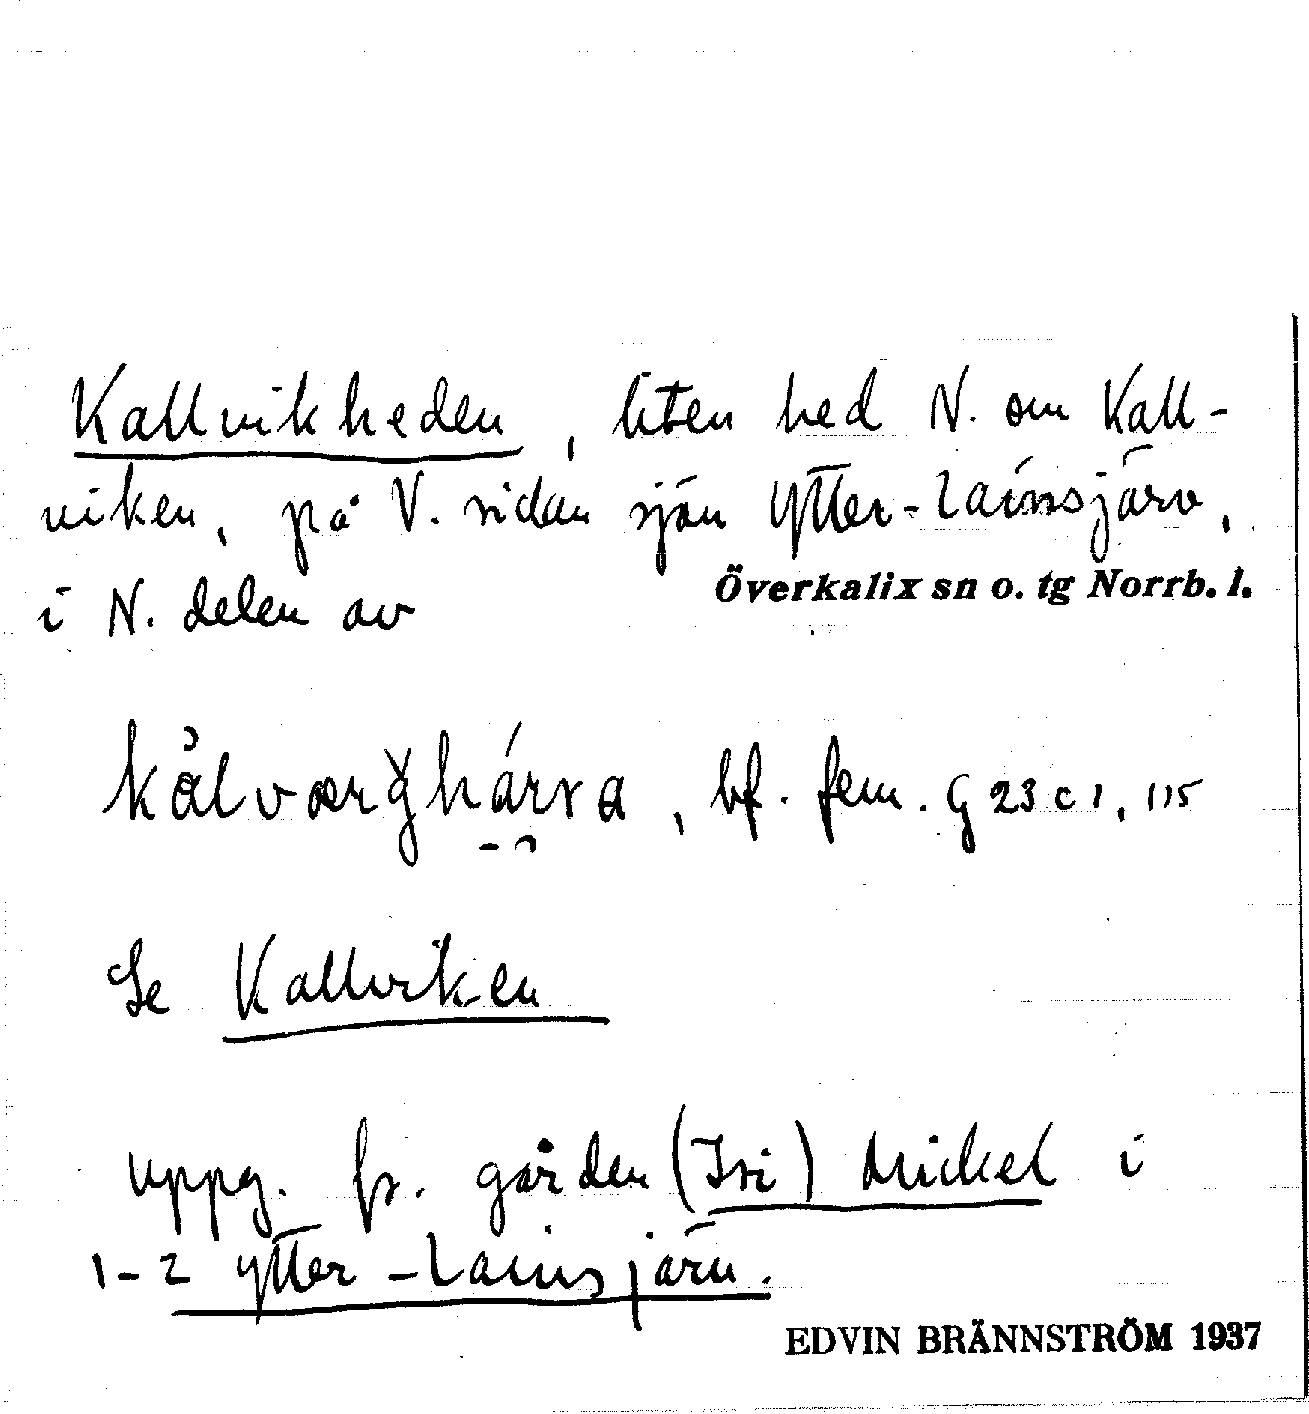 Kallvikheden, liten hed N. om Kall-
viken, på V. sidan sjön Ytter-Lainsjärv,
i N. delen av Överkalix sn o. tg Norrb. l.
bf. fem. G 23 c 1, 115
Se Kallviken
uppg. fr. gården (Isi) Mickel i
1-2 Ytter-Lainsjärv.
EDVIN BRÄNNSTRÖM 1937